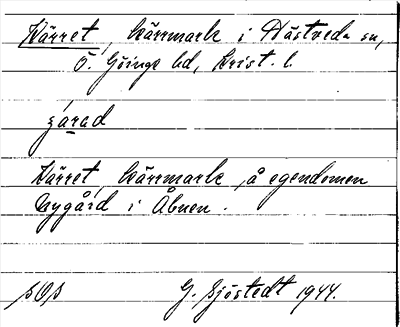 Kärret, kärrmark i Hästveda sn,
Ö. Göinge hd, Krist. l.
Kärret, kärrmark, å egendomen
Nygård i Åbuen.
sOs G. Sjöstedt 1944.